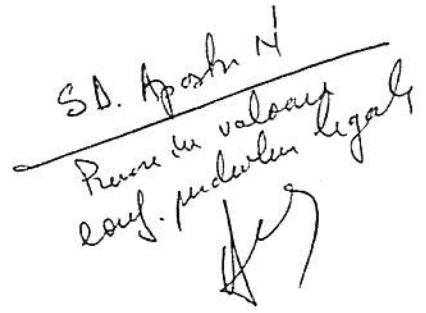 SD. Apostu N
Punere in valoare
conf. prevederilor legale